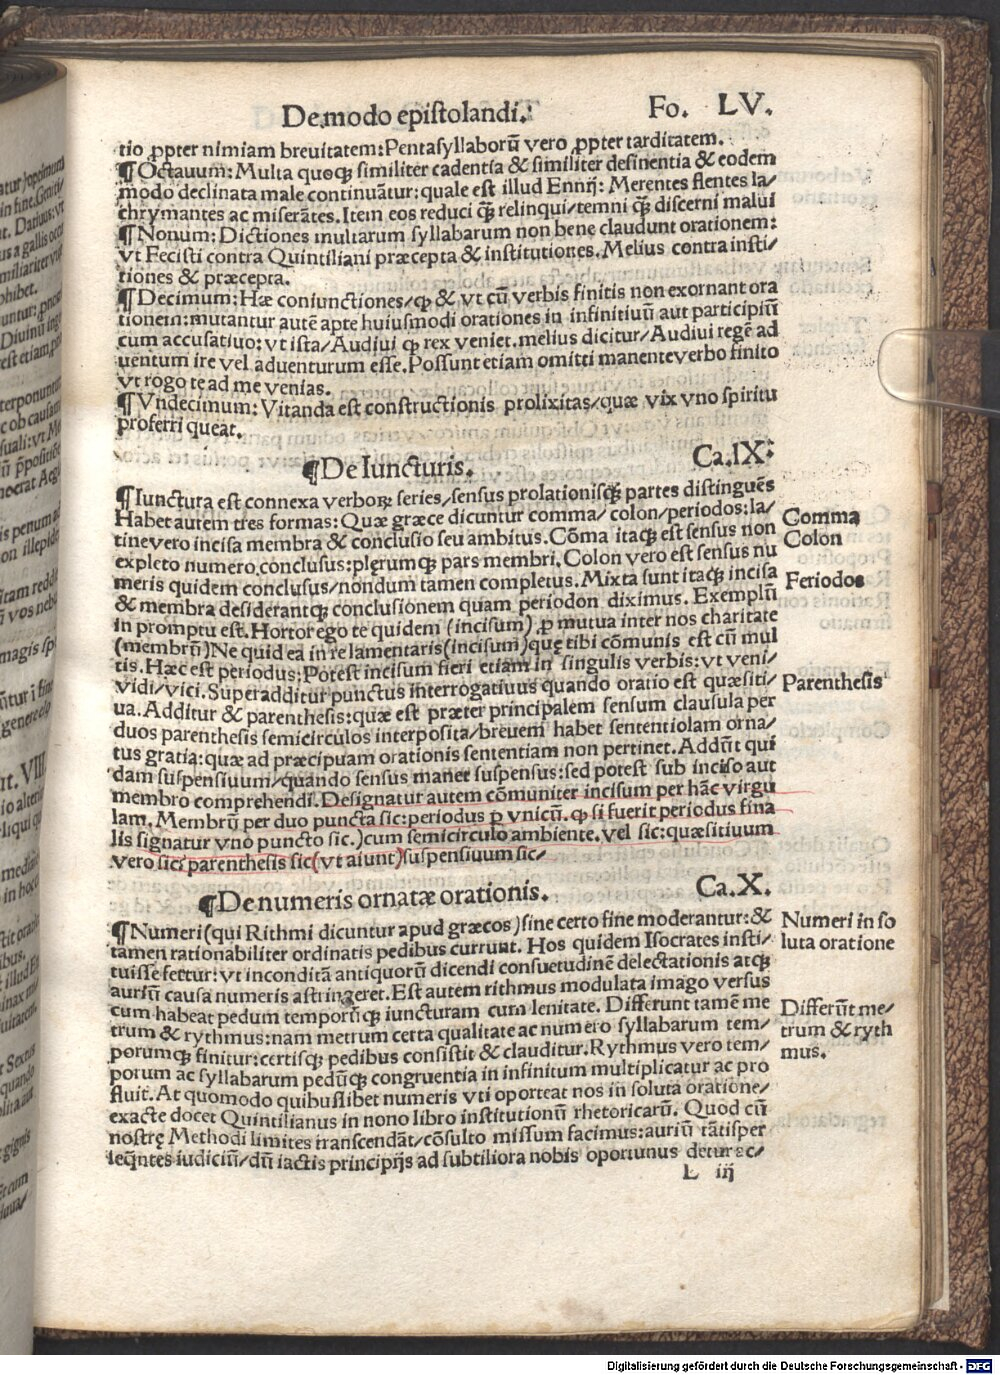 De modo epistolandi. Fo. LV.
tio ꝓpter nimiam breuitatem: Pentasyllaborū vero ꝓpter tarditatem.
¶Octauum: Multa quoqꝫ similiter cadentia & similiter desinentia & eodem
modo declinata male continuātur: quale est illud Ennij: Merentes flentes la/
chrymantes ac miserātes. Item eos reduci qꝫ̄ relinqui/temni qꝫ̄ discerni malui
¶Nonum: Dictiones multarum syllabarum non bene claudunt orationem:
vt Fecisti contra Quintiliani præcepta & institutiones. Melius contra insti/
tiones & præcepta.
¶Decimum: Hæ coniunctiones/ꝙ & vt cū verbis finitis non exornant ora
tionem: mutantur autē apte huiusmodi orationes in infinitiuū aut participiū
cum accusatiuo: vt ista/Audiui ꝙ rex veniet. melius dicitur/Audiui regē ad
uentum ire vel aduenturum esse. Possunt etiam omitti manente verbo finito
vt rogo te ad me venias.
¶Vndecimum: Vitanda est constructionis prolixitas/quæ vix vno spiritu
proferri queat.
¶De Iuncturis. Ca.IX.
¶Iunctura est connexa verboꝝ series/sensus prolationisqꝫ partes distinguēs
Habet autem tres formas: Quæ græce dicuntur comma/colon/periodos: la/
tine vero incisa membra & conclusio seu ambitus. Cōma itaqꝫ est sensus non
expleto numero conclusus: plerumqꝫ pars membri. Colon vero est sensus nu
meris quidem conclusus/nondum tamen completus. Mixta sunt itaqꝫ incisa
& membra desiderantqꝫ conclusionem quam periodon diximus. Exemplū
in promptu est. Hortor ego te quidem (incisum) ꝓ mutua inter nos charitate
(membrū) Ne quid ea in re lamentaris (incisum) quę tibi cōmunis est cū mul
tis. Hæc est periodus: Potest incisum fieri etiam in singulis verbis: vt veni/
vidi/vici. Superadditur punctus interrogatiuus quando oratio est quæsiti/
ua. Additur & parenthesis: quæ est præter principalem sensum clausula per
duos parenthesis semicirculos interposita/breuem habet sententiolam orna/
tus gratia: quæ ad præcipuam orationis sententiam non pertinet. Addūt qui
dam suspensiuum/quando sensus manet suspensus: sed potest sub inciso aut
membro comprehendi. Designatur autem cōmuniter incisum per hāc virgu
lam. Membrū per duo puncta sic: periodus ꝑ vnicū. ꝙ si fuerit periodus fina
lis signatur vno puncto sic.) cum semicirculo ambiente. vel sic: quæsitiuum
vero sic: parenthesis sic (vt aiunt) suspensiuum sic/
¶De numeris ornatæ orationis. Ca.X.
¶Numeri (qui Rithmi dicuntur apud græcos) sine certo fine moderantur: &
tamen rationabiliter ordinatis pedibus currunt. Hos quidem Isocrates insti/
tuisse fertur: vt inconditā antiquorū dicendi consuetudinē delectationis atqꝫ
auriū causa numeris astringeret. Est autem rithmus modulata imago versus
cum habeat pedum temporūqꝫ iuncturam cum lenitate. Differunt tamē me
trum & rythmus: nam metrum certa qualitate ac numero syllabarum tem/
porumqꝫ finitur: certisqꝫ pedibus consistit & clauditur. Rythmus vero tem/
porum ac syllabarum pedūqꝫ congruentia in infinitum multiplicatur ac pro
fluit. At quomodo quibuslibet numeris vti oporteat nos in soluta oratione/
exacte docet Quintilianus in nono libro institutionū rhetoricarū. Quod cū
nostrę Methodi limites transcendāt/cōsulto missum facimus: auriū tātisper
seqn̄tes iudiciū/dū iactis principijs ad subtiliora nobis oportunus detur ac/
L iij
Comma
Colon
Periodos
Parenthesis
Numeri in so
luta oratione
Differūt me/
trum & ryth
mus.
Digitalisierung gefördert durch die Deutsche Forschungsgemeinschaft - DFG